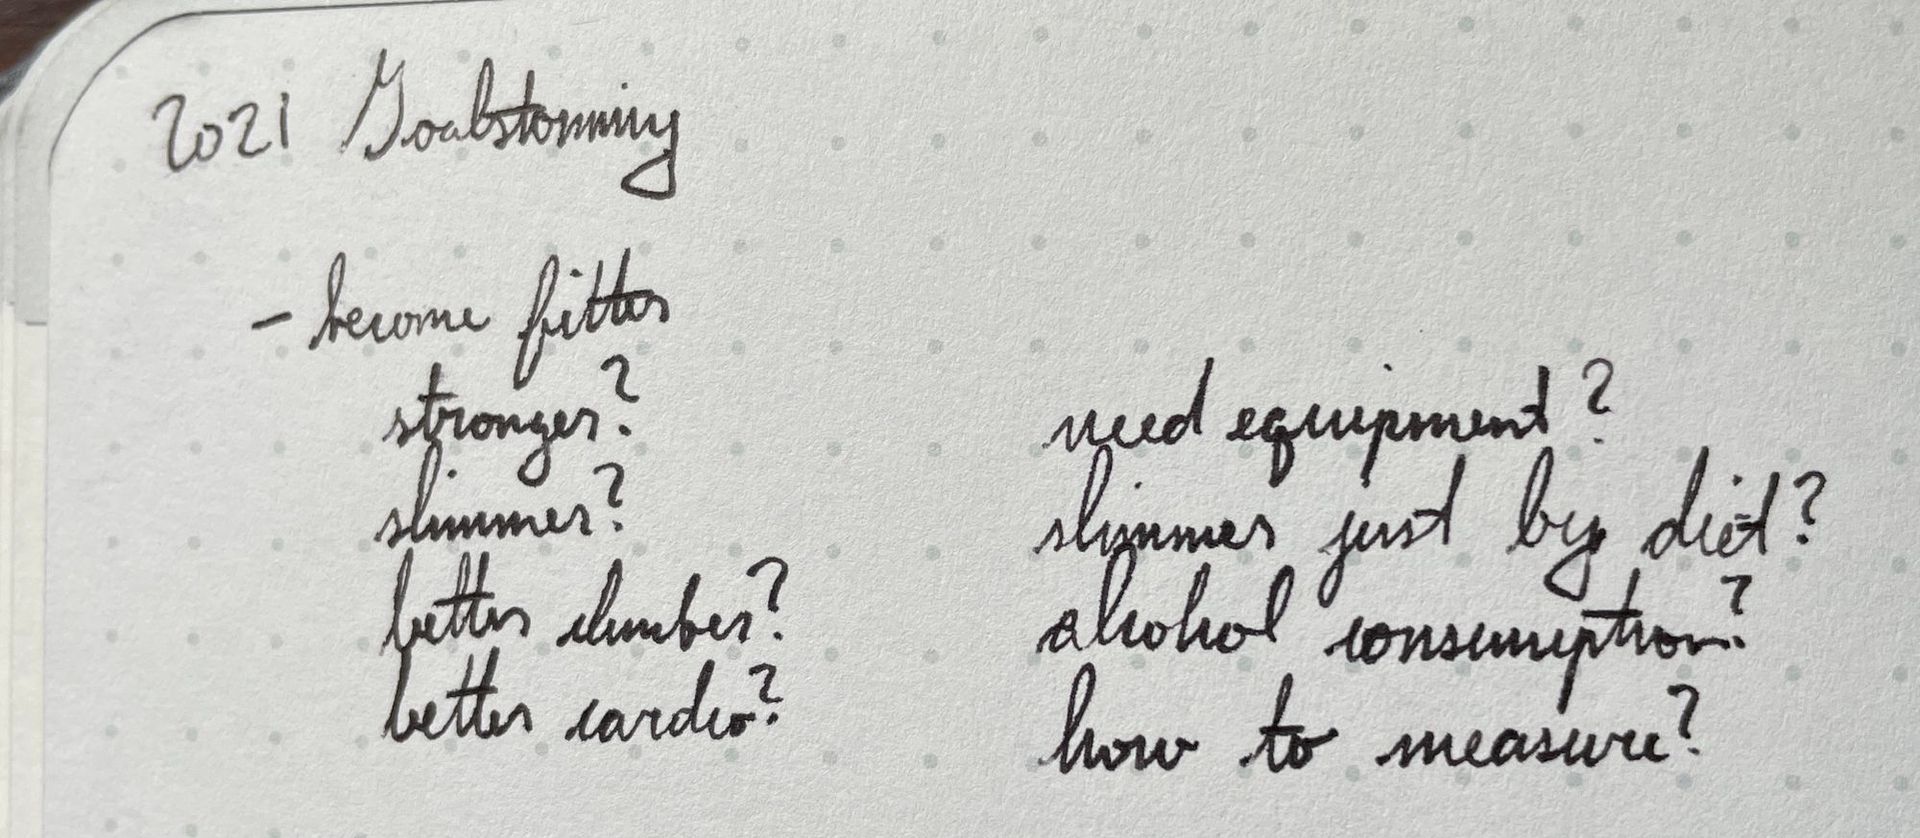 2021 Goalstorming
- become fitter
stronger?
slimmer?
better climber?
better cardio?
need equipment?
slimmer just by diet?
alcohol consumption?
how to measure?